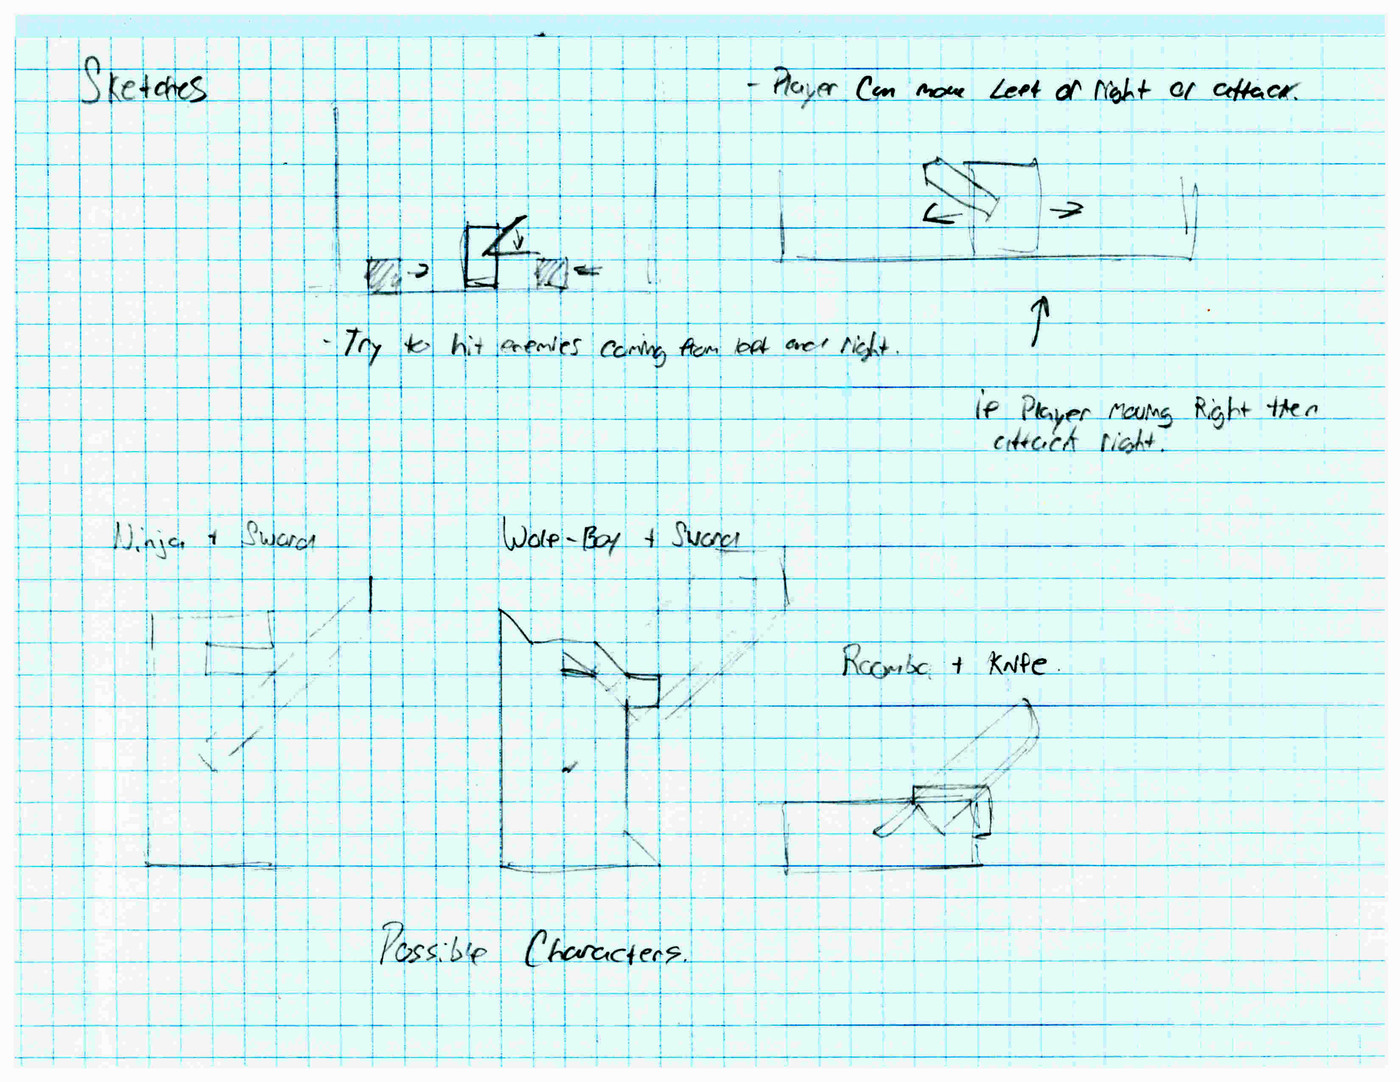 Sketches
- Player Can move Left or right or attack.
- Try to hit enemies coming from left and right.
if Player moving Right then
attack right.
Ninja + Sword
Wolf-Boy + Sword
Roomba + Knife.
Possible Characters.